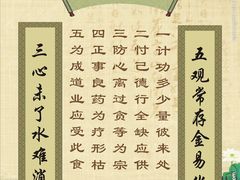 五观常存金易
一计功多少量彼来处
二忖己德行全缺应供
三防心离过贪等为宗
四正事良药为疗形枯
五为成道业应受此食
三心未了水难消